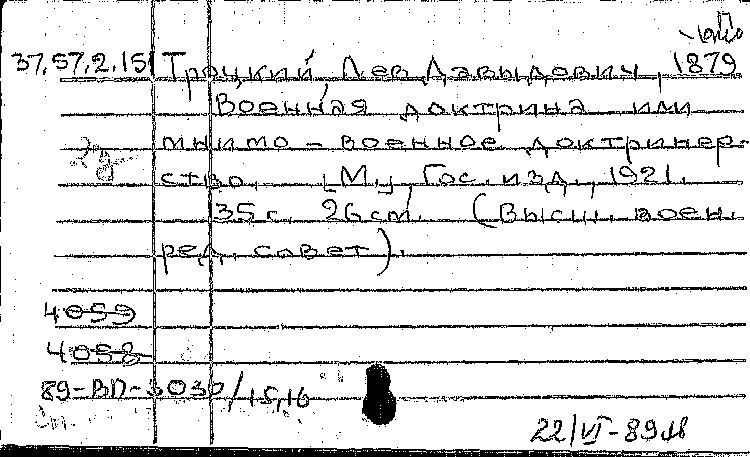 37.57.2.151 Троцкий, Лев Давыдович, 1879
Военная доктрина или
мнимо-военное доктринер-
ство. [М.], Гос. изд., 1921.
35 с. 26 см. (Высш. воен.
ред. совет).
4059
4058
89-ВП-3030/15,16
22/VI-89